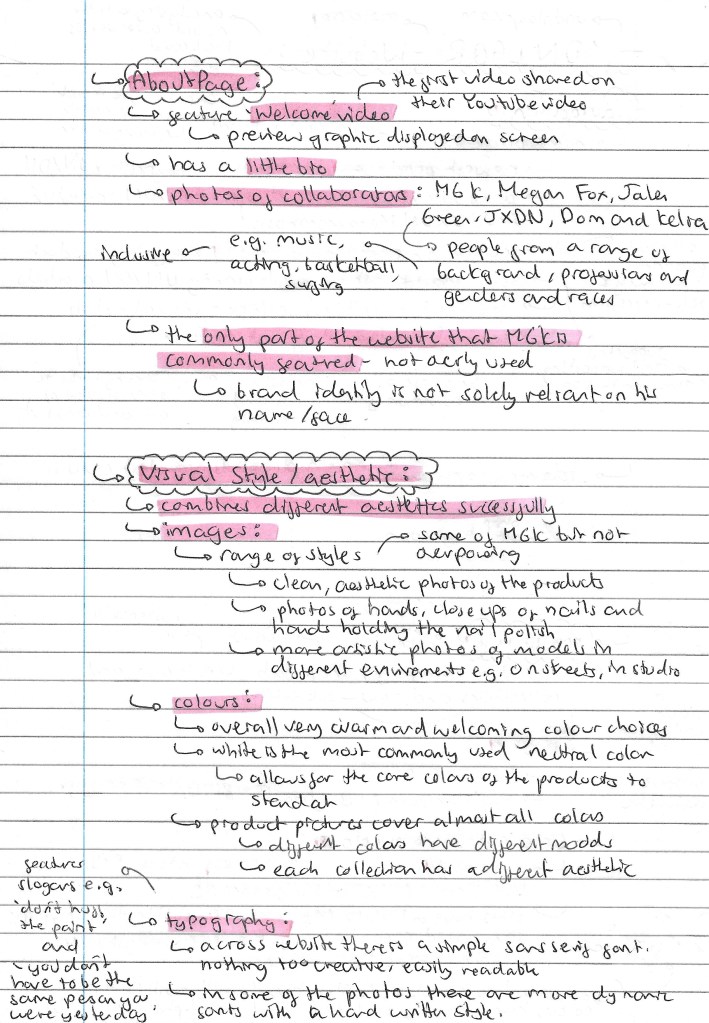 About Page:
the first video shared on
their Youtube video
feature 'Welcome' video
preview graphic displayed on screen
has a little bio
photos of collaborators: MGK, Megan Fox, Jalen
Green, JXDN, Dom and Kelia
people from a range of
background, professions and
genders and races
e.g. music,
acting, basketball,
surfing
inclusive
the only part of the website that MGK is
commonly featured - not overly used
brand identity is not solely reliant on his
name/face.
Visual Style/aesthetic:
combines different aesthetics sucessfully
images:
some of MGK but not
overpowering
range of styles
clean, aesthetic photos of the products
photos of hands, close ups of nails and
hands holding the nail polish
more artistic photos of models in
different enviroments e.g. on streets, in studio
colours:
overall very warm and welcoming colour choices
white is the most commonly used neutral colour
allows for the core colours of the products to
stand out
product pictures cover almost all colours
different colours have different moods
each collection has a different aesthetic
typography:
across website theres a simple sans serif font.
nothing too creative, easily readable
in some of the photos there are more dynamic
fonts with a hand written style.
features
slogans e.g.
'don't huff
the paint'
and
'you don't
have to be the
same person you
were yesterday'